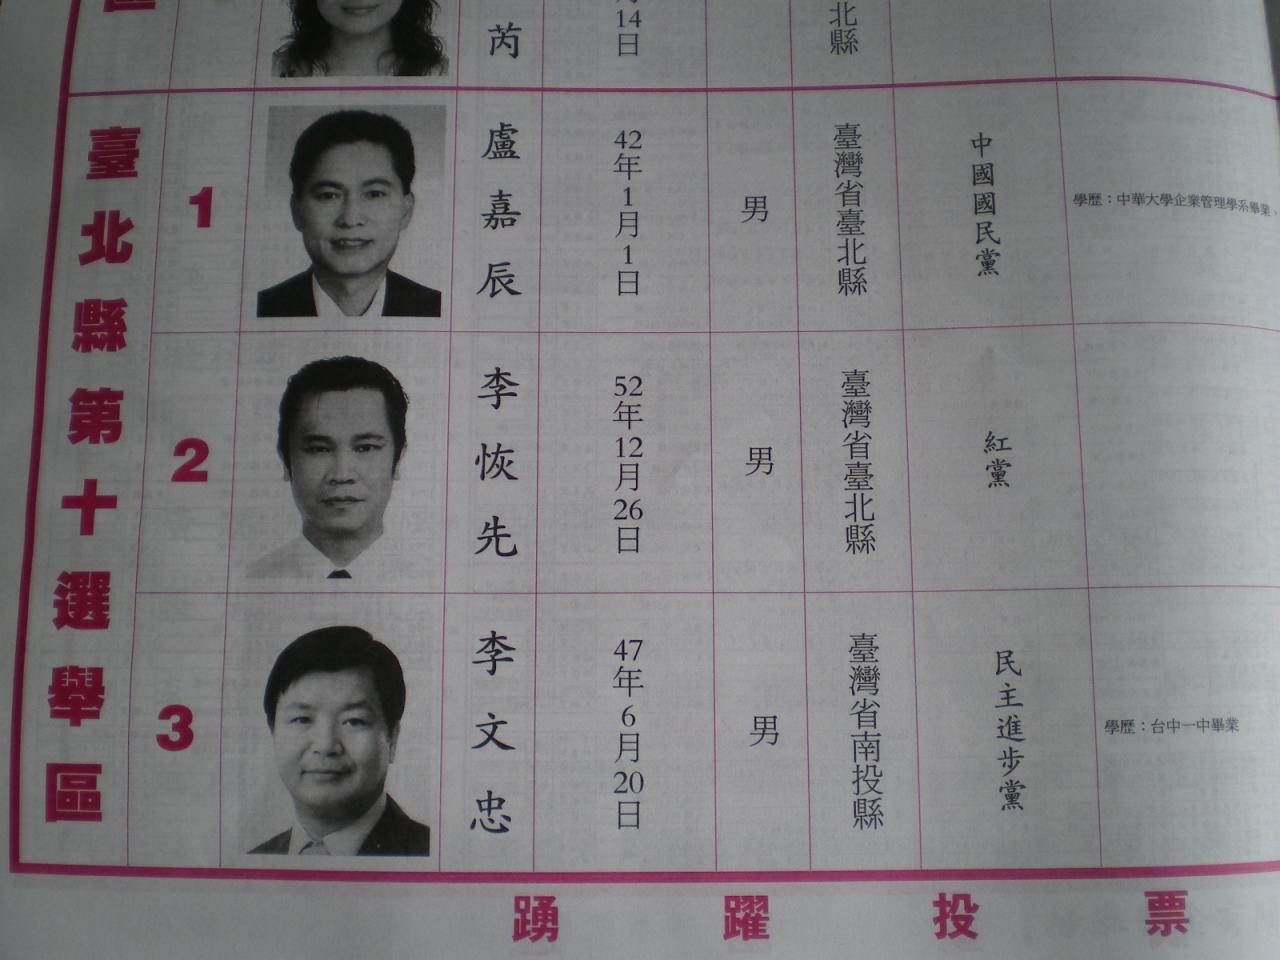 芮
14日
北縣
臺北縣第十選舉區
1
盧嘉辰
42年1月1日
男
臺灣省臺北縣
中國國民黨
學歷：中華大學企業管理學系畢業、
2
李恢先
52年12月26日
男
臺灣省臺北縣
紅黨
3
李文忠
47年6月20日
男
臺灣省南投縣
民主進步黨
學歷：台中一中畢業
踴躍投票